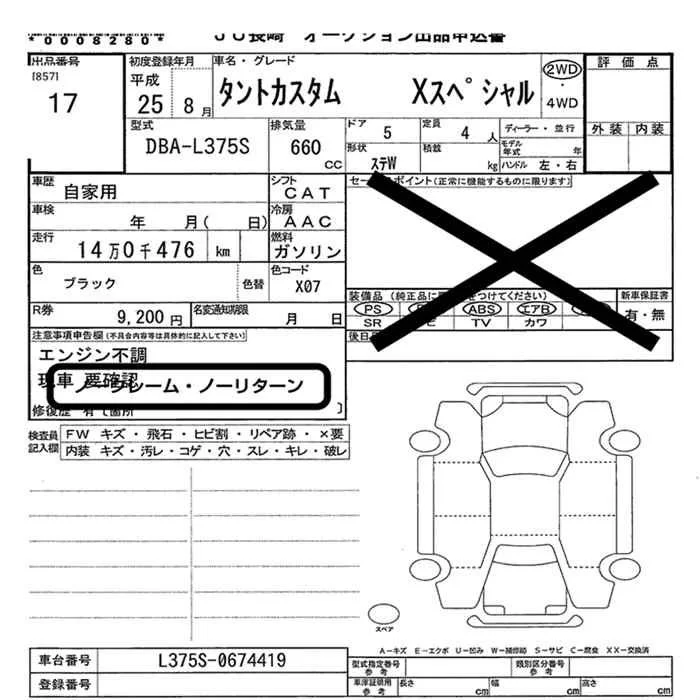 *0008280* JU長崎 オークション出品申込書
出品番号 初度登録年月 車名・グレード 2WD 評価点
[857] 平成
17 25 8月 タントカスタム Xスペシャル ・ 4WD
型式 排気量 ドア 定員 ディーラー・並行 外装 内装
DBA-L375S 660 CC 5 4人 モデル年式 年
形状 積載
ステW kg ハンドル 左・右
車歴 自家用 シフト CAT セールスポイント(正常に機能するものに限ります)
車検 年 月( 日) 冷房 AAC
走行 14万0千476 km 燃料 ガソリン
色 ブラック 色替 色コード X07
装備品 (純正品に をつけてください) 新車保証書
PS ABS エアB 有・無
R券 9,200円 名変通知期限 月 日 SR TV カワ
注意事項申告欄 (不具合内容等は具体的に記入して下さい) 後日
エンジン不調
現車 要確認
ノークレーム・ノーリターン
修復歴 有 て箇所 ]
検査員記入欄 FW キズ・飛石・ヒビ割・リペア跡・×要
内装 キズ・汚レ・コゲ・穴・スレ・キレ・破レ
スペア
A-キズ E-エクボ U-凹み W-補修跡 S-サビ C-腐食 XX-交換済
車台番号 L375S-0674419 型式指定番号参考 類別区分番号参考
登録番号 車庫証明用参考 長さ cm 幅 cm 高さ cm